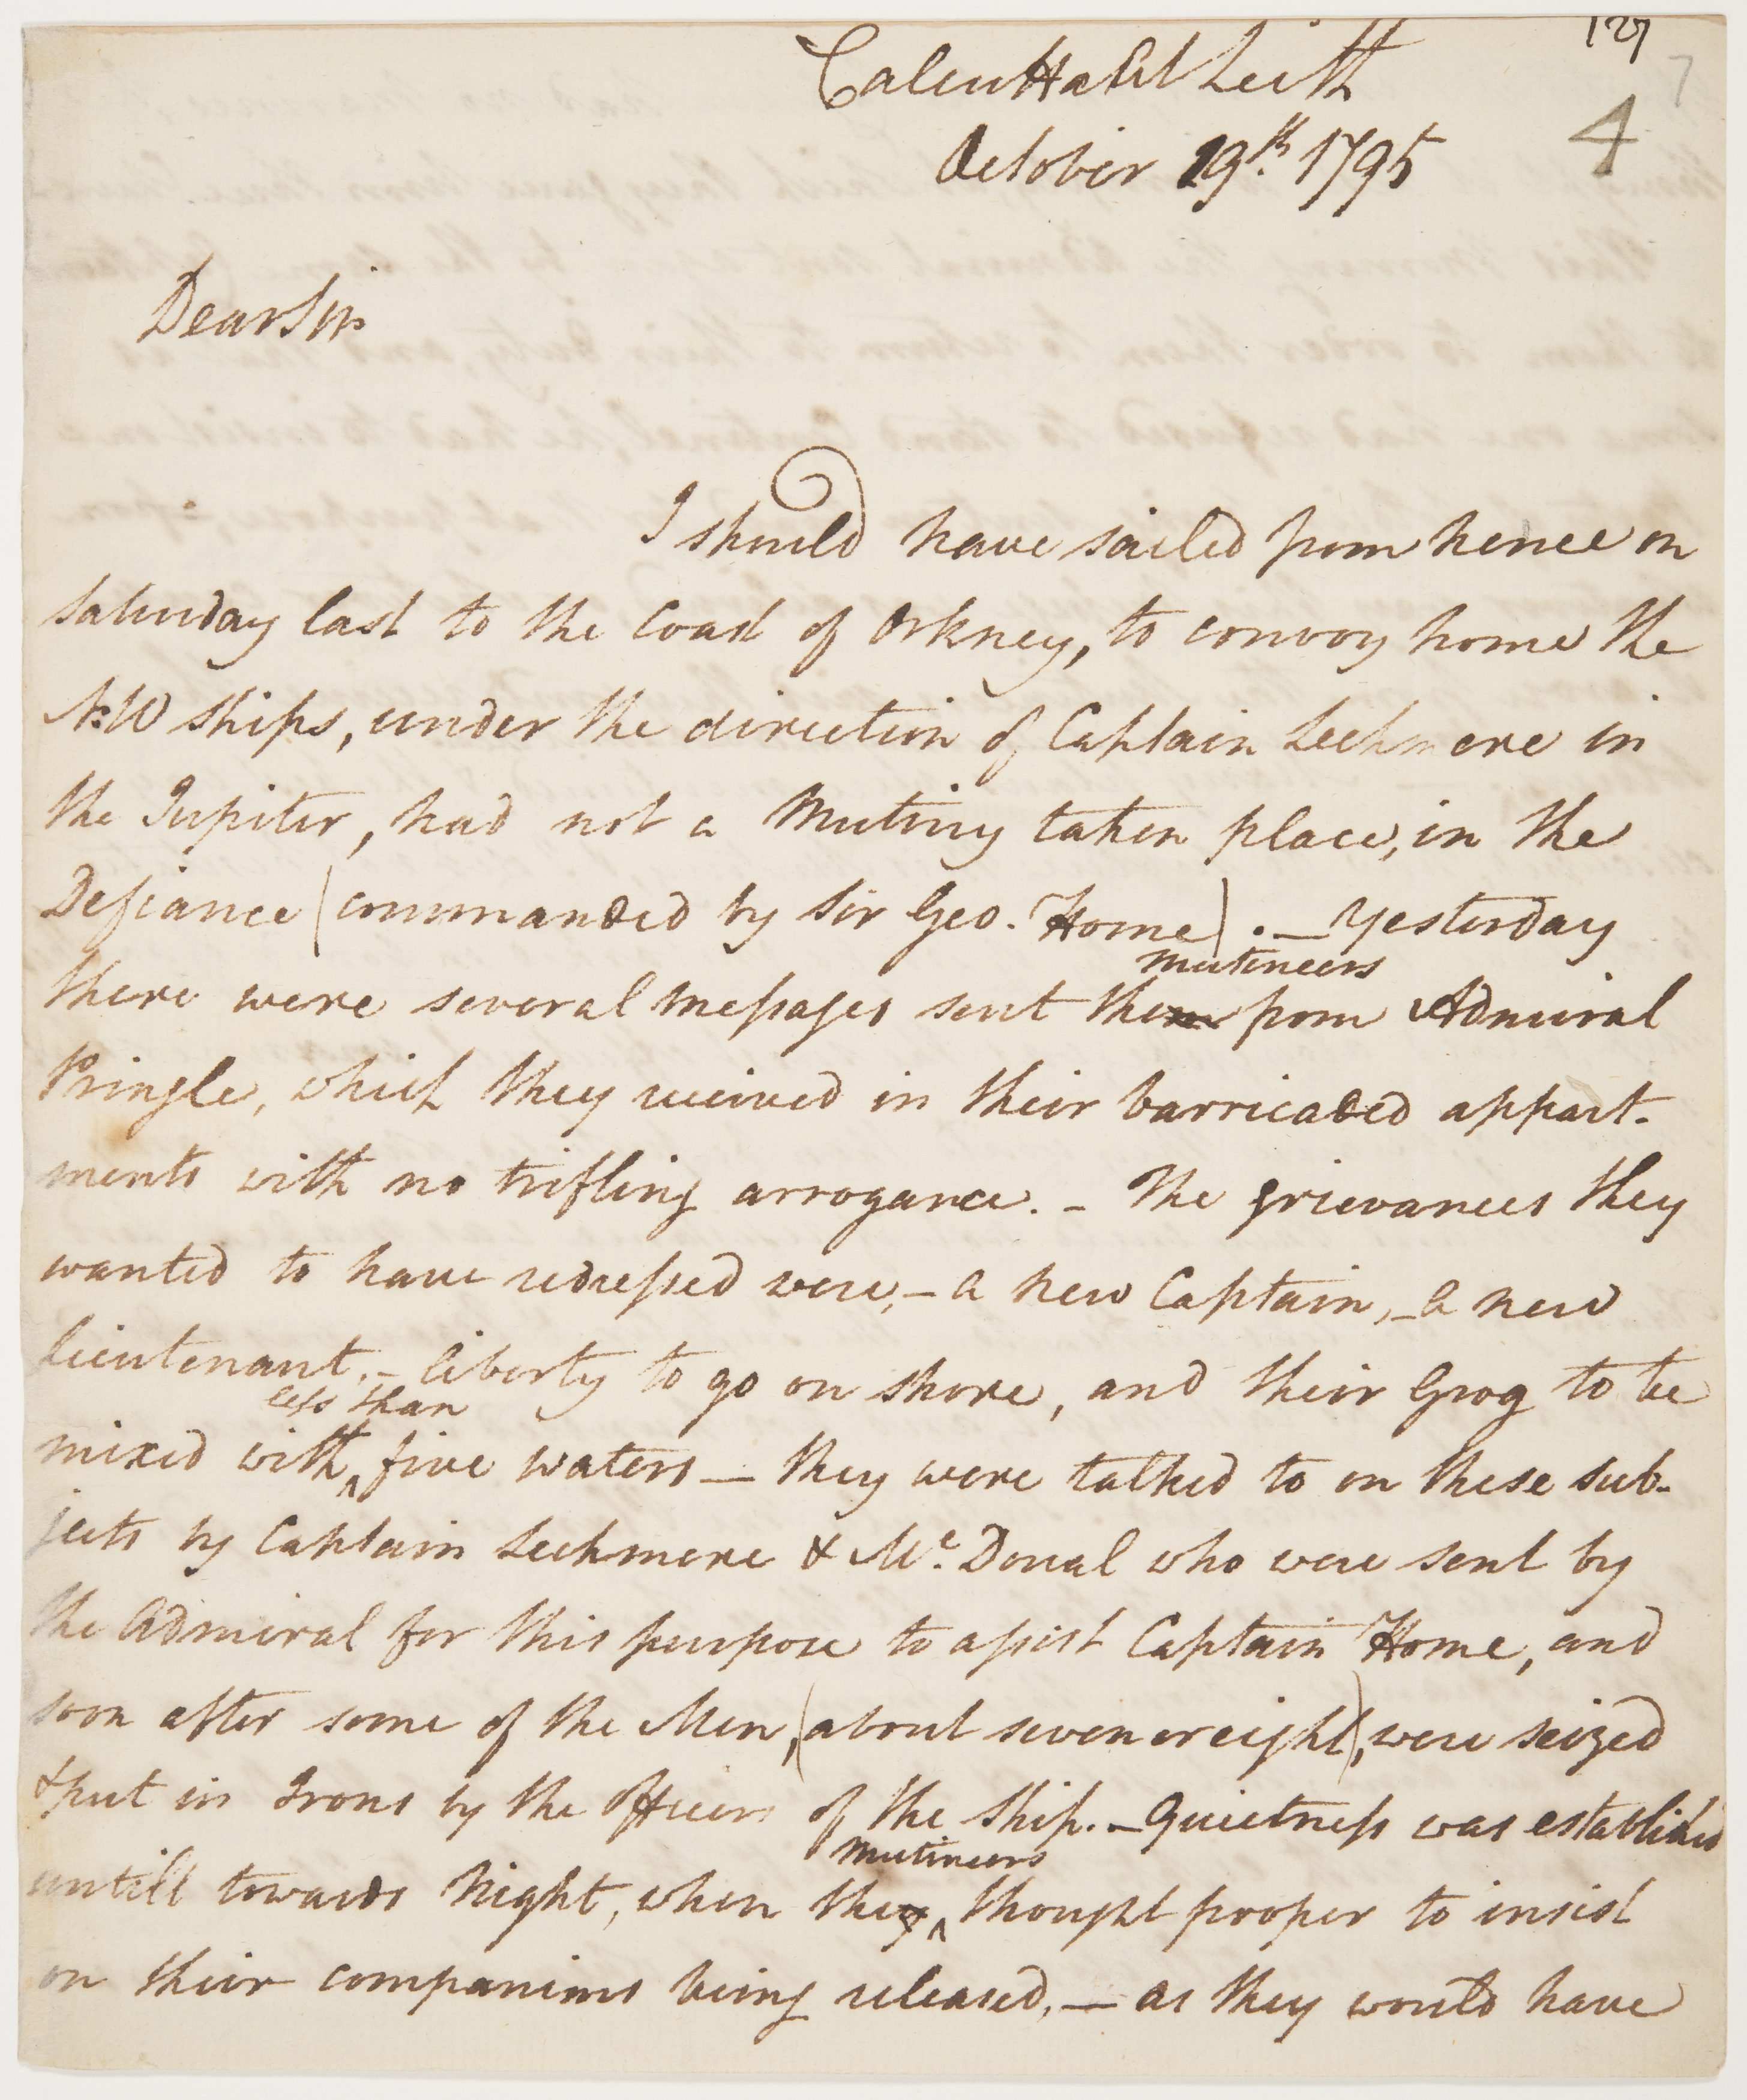 127
7
4
Calcutta at Leith
October 19th. 1795
Dear Sir
I should have sailed from hence on
Saturday last to the Coast of Orkney, to convoy home the
N:W ships, under the direction of Captain Lechmere in
the Jupiter, had not a Mutiny taken place, in the
Defiance (commanded by Sir Geo. Home). — Yesterday
mutineers
there were several messages sent them from Admiral
Pringle, which they received in their barricaded appart-
ments with no trifling arrogance. - The grievances they
wanted to have redressed were, - a new Captain, - a new
lieutenant, - liberty to go on shore, and their Grog to be
less than
mixed with ^ five waters — they were talked to on these sub-
jects by Captain Lechmere & Mc. Doual who were sent by
the Admiral for this purpose to assist Captain Home, and
soon after some of the Men, (about seven or eight), were seized
& put in Irons by the Officers of the Ship. - Quietness was established
Mutineers
untill towards Night, when they ^ thought proper to insist
on their companions being released, — as they would have